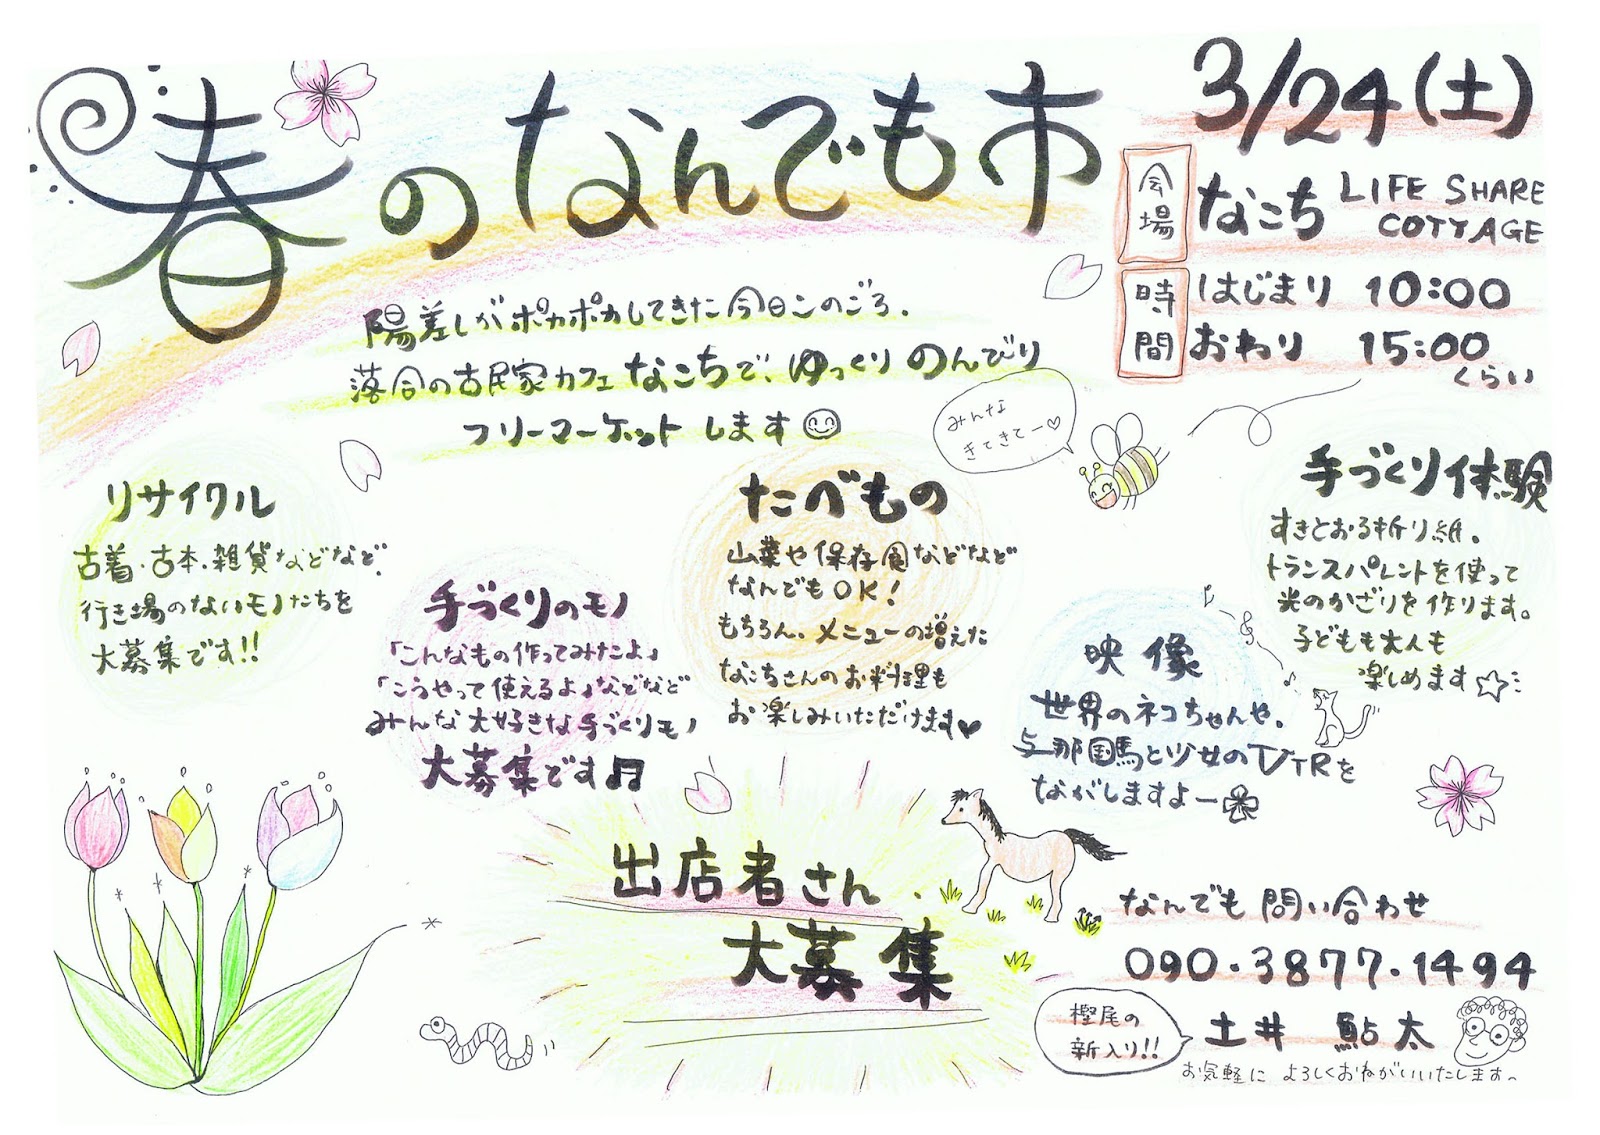 春のなんでも市
3/24(土)
会場
なこち LIFE SHARE
COTTAGE
時間
はじまり 10:00
おわり 15:00
くらい
陽差しがポカポカしてきた今日このごろ、
落合の古民家カフェなこちで、ゆっくりのんびり
フリーマーケットします
みんな
きてきてー♡
リサイクル
古着・古本・雑貨などなど、
行き場のないモノたちを
大募集です!!
手づくりのモノ
「こんなもの作ってみたよ」
「こうやって使えるよ」などなど
みんな大好きな手づくりモノ
大募集です♬
たべもの
山菜や保存食などなど
なんでもOK!
もちろん、メニューの増えた
なこちさんのお料理も
お楽しみいただけます♥
映像
世界のネコちゃんや、
与那国馬と少女のVTRを
ながしますよー
手づくり体験
すきとおる折り紙、
トランスパレントを使って
光のかざりを作ります。
子どもも大人も
楽しめます☆
出店者さん、
大募集
なんでも問い合わせ
090.3877.1494
樫尾の
新入り!!
土井 鮎太
お気軽に よろしくおねがいいたします。